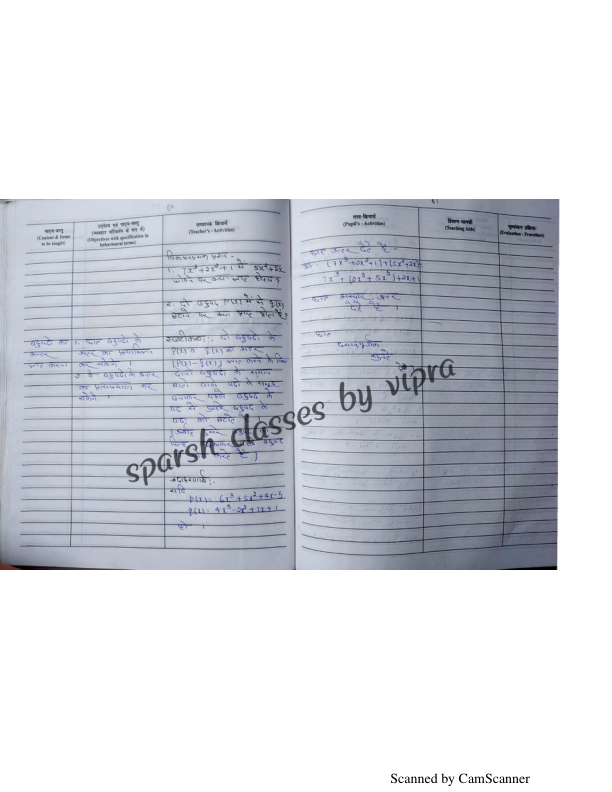 ६०
पाठ्य-वस्तु
(Content & Items
to be taught)
उद्देश्य एवं पाठ्य-वस्तु
(व्यवहार परिवर्तन के रूप में)
(Objectives with specification in
behavioural terms)
अध्यापक क्रियायें
(Teacher's - Activities)
1. 7x³+2x²+1 में 5x³+2x
२. दो बहुपद P(x) में से q(x)
घटाने पर क्या प्राप्त होता है?
बहुपदों का
अन्तर
ज्ञात करना
1. छात्र बहुपदों के
अन्तर का प्रत्यास्मरण
कर सकेंगे ।
2. वे बहुपदों के अन्तर
का प्रत्यभिज्ञान कर
सकेंगे ।
स्पष्टीकरण:- दो बहुपदों के
P(x) व q(x) का अन्तर
[P(x)-q(x)] ज्ञात करने के लिए
दोनों बहुपदों के समान
घात वाले पदों के समूह
बनाकर पहले बहुपद के
पद में दूसरे बहुपद के
पदों को घटाते हैं
उदाहरणार्थ:-
यदि
P(x) = 6x³+5x²+4x-5
q(x) = 4x³-2x²+7x+1
हो ।
६१
छात्र-क्रियायें
(Pupil's - Activities)
शिक्षण-सामग्री
(Teaching Aids)
मूल्यांकन प्रक्रिया
(Evaluation - Procedure)
छात्र उत्तर देते हैं -
(7x³+2x²+1)+(5x³+2x)
छात्र
ध्यानपूर्वक
सुनते
हैं
sparsh classes by vipra
Scanned by CamScanner